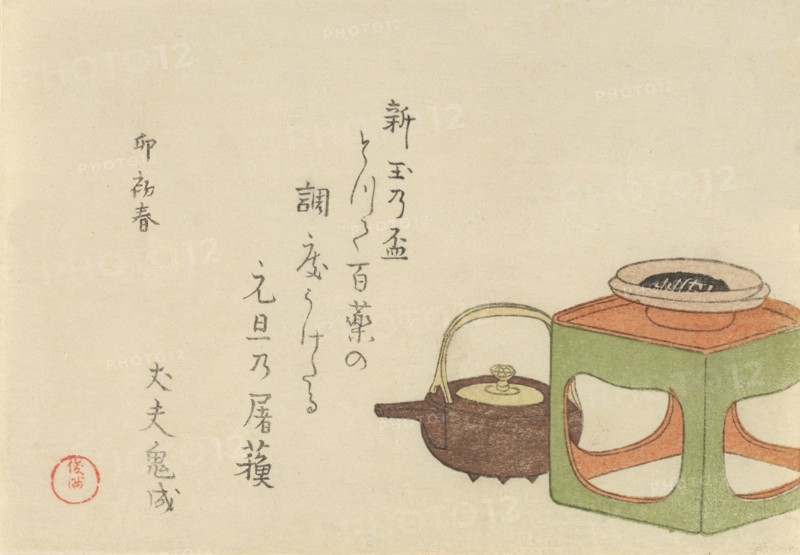 新玉乃盃
とりて百薬の
調度うけたる
元旦乃屠蘓
丈夫鬼成
卯初春
PHOTO12